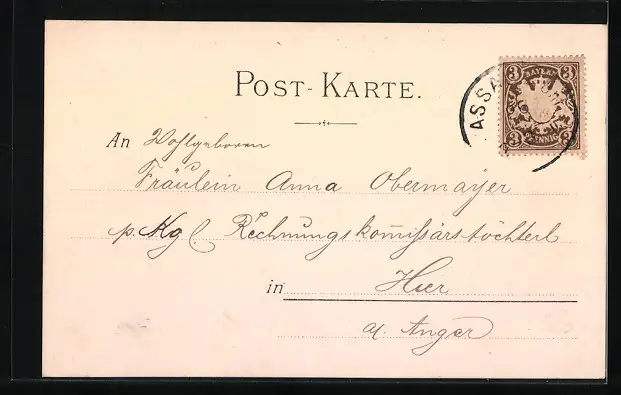 POST-KARTE.
3 BAYERN 3
ASSA
3 PFENNIG 3
An Wohlgeboren
Fräulein Anna Obermayer
p. Kgl. Rechnungskom̅issärstöchterl
in Hier
a. Anger